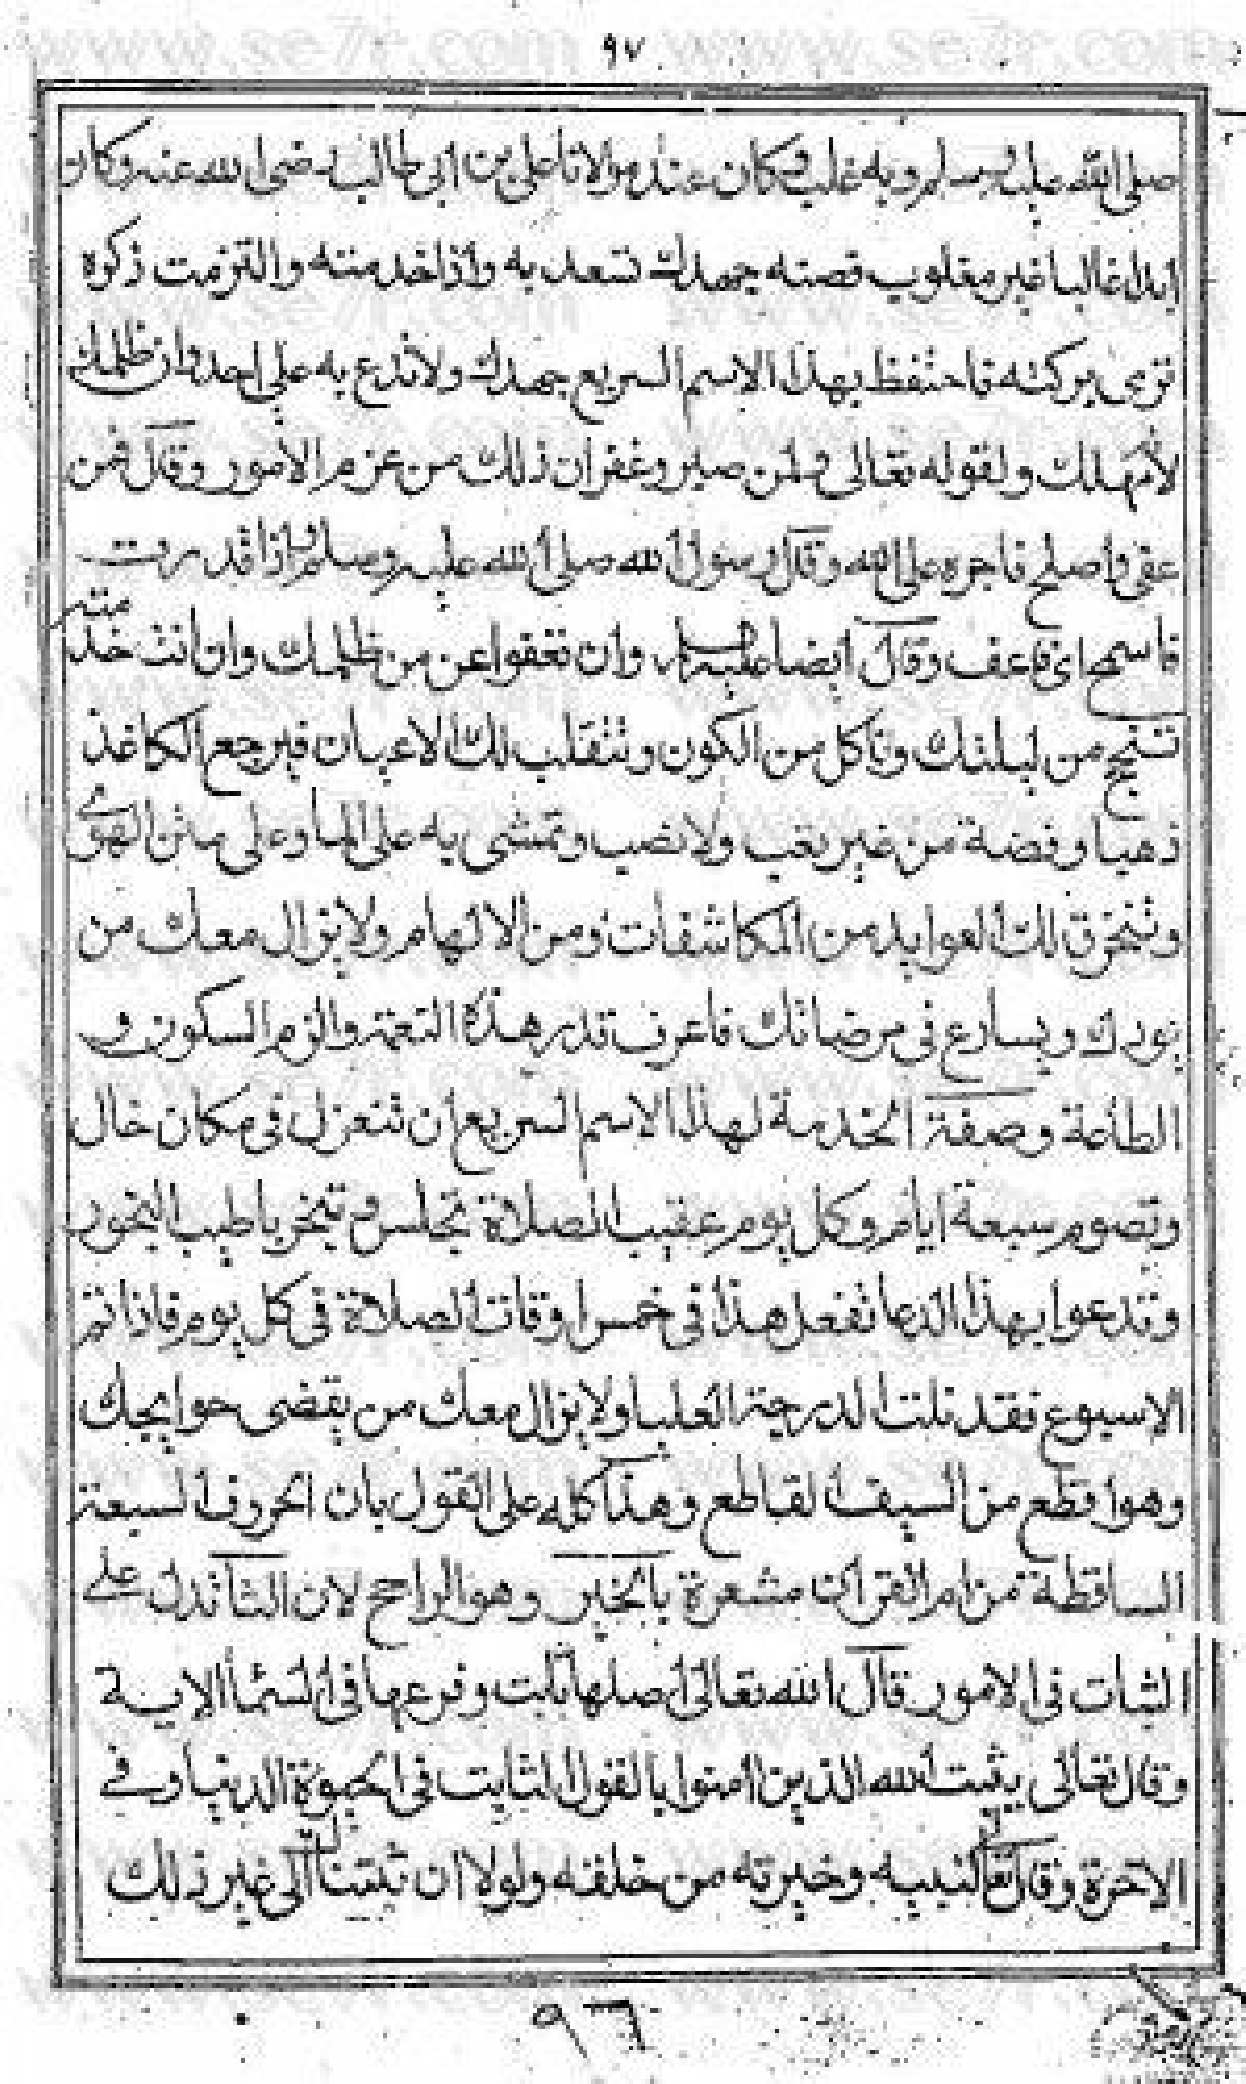 www.se7r.com www.se7r.com
٩٧
صلى الله عليه وسلم وبه غلب وكان عند مولانا على بن ابى طالب رضى الله عنه وكان
ابدا غالبا غير مغلوب فصنه جهدك تسعد به واذا خدمته والتزمت ذكره
ترى بركته فاحتفظ بهذا الاسم السريع جهدك ولا تدع به على احد وان ظلمك
لأمهلك ولقوله تعالى ولمن صبر وغفر ان ذلك من عزم الامور وقال فمن
عفى واصلح فاجره على الله وقال رسول الله صلى الله عليه وسلم واذا قدرت
فاسمح اى فاعف وقال ايضا عليه السلام وان تعفوا عن من ظلمك وان انت خدمته
تنجح من ليلتك وتأكل من الكون وتنقلب لك الاعيان فيرجع الكاغذ
ذهبا وفضة من غير تعب ولا نصب وتمشى به على الما وعلى متن الهوى
وتنخرق لك العوايد من المكاشفات ومن الالهام ولا يزال معك من
يودك ويسارع فى مرضاتك فاعرف قدر هذه النعمة والزم السكون و
الطاعة وصفة الخدمة لهذا الاسم السريع أن تنعزل فى مكان خال
وتصوم سبعة ايام وكل يوم عقيب الصلاة تجلس وتبخر باطيب البخور
وتدعوا بهذا الدعا تفعل هذا فى خمس اوقات الصلاة فى كل يوم فاذا تم
الاسبوع فقد نلت الدرجة العليا ولا يزال معك من يقضى حوايجك
وهو اقطع من السيف القاطع وهذا كله على القول بان الحروف السبعة
الساقطة من ام القرآن مشعرة بالخير وهو الراجح لان الثا تدل على
الثبات فى الامور قال الله تعالى أصلها ثابت وفرعها فى السمأ الاية
وقال تعالى يثبت الله الذين امنوا بالقول الثابت فى الحيوة الدنيا وفى
الاخرة وقال تعالى لنبيه وخيرته من خلقه ولولا ان ثبتناك الى غير ذلك
٩٦